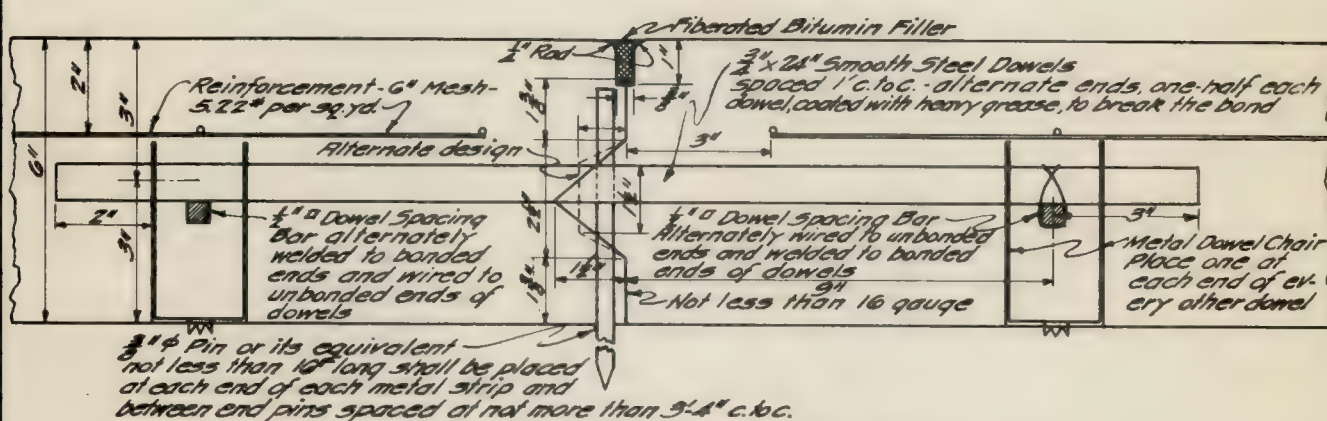 Fiberated Bitumin Filler
½" Rad
1"
¾" x 24" Smooth Steel Dowels
spaced 1' c. to c. - alternate ends, one-half each
dowel, coated with heavy grease, to break the bond
Reinforcement - 6" Mesh -
5.22# per sq. yd.
2"
3"
6"
3"
Alternate design
3"
2"
3"
½" □ Dowel Spacing
Bar alternately
welded to bonded
ends and wired to
unbonded ends of
dowels
½" □ Dowel Spacing Bar
Alternately wired to unbonded
ends and welded to bonded
ends of dowels
9"
Not less than 16 gauge
Metal Dowel Chair
Place one at
each end of ev-
ery other dowel
⅜" ϕ Pin or its equivalent
not less than 16" long shall be placed
at each end of each metal strip and
between end pins spaced at not more than 3'-4" c. to c.